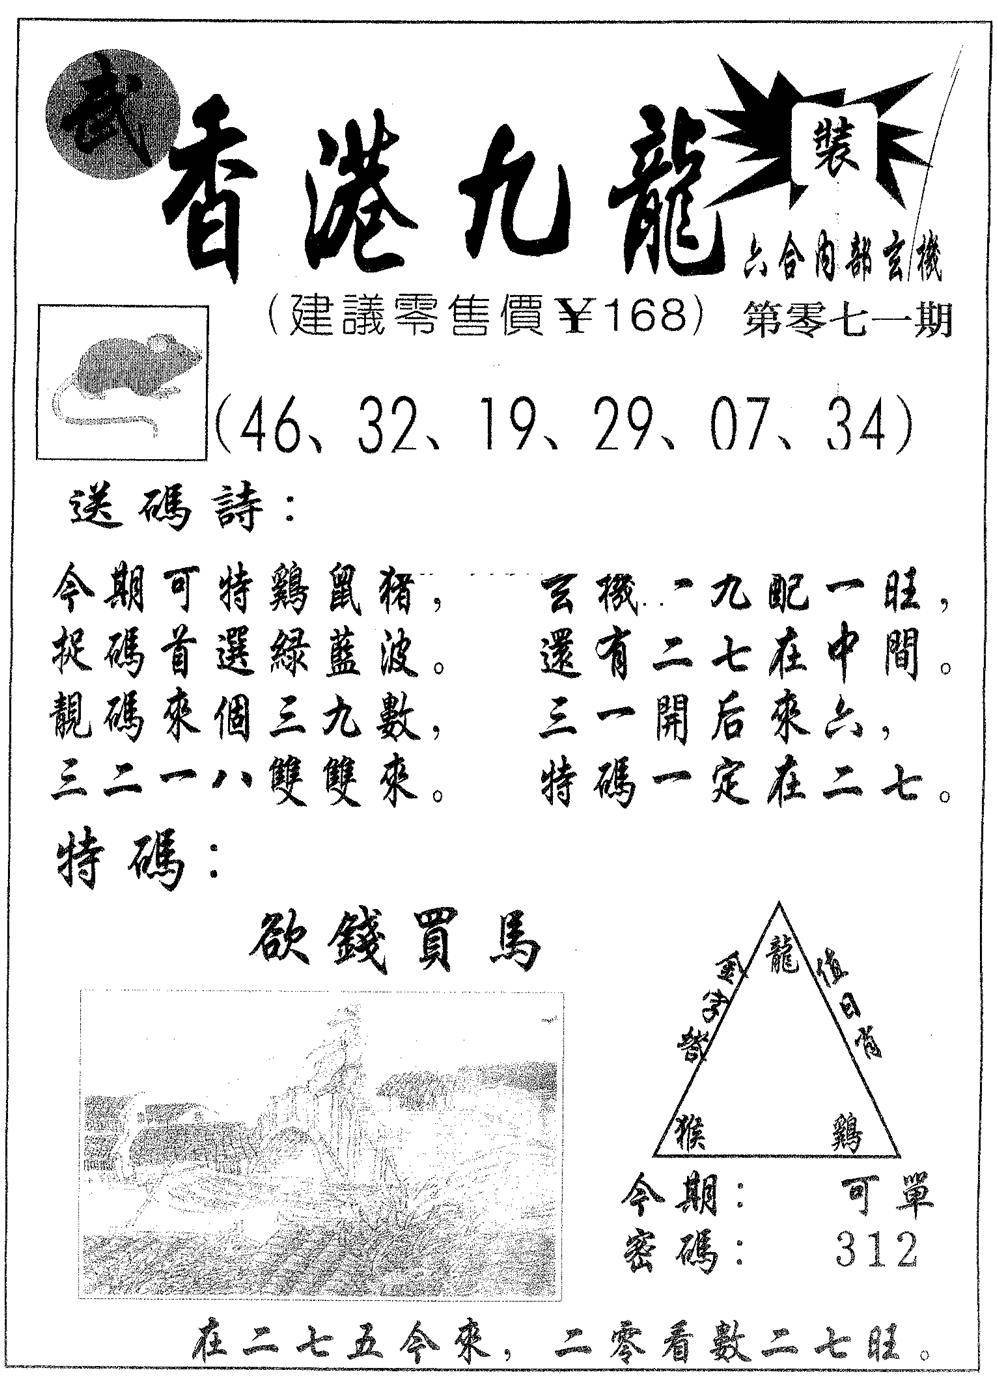 武
香港九龍
裝
六合内部玄機
（建議零售價¥168） 第零七一期
（46、32、19、29、07、34）
送碼詩：
今期可特鷄鼠猪， 玄機一九配一旺，
捉碼首選緑藍波。 還有二七在中間。
靚碼來個三九數， 三一開后來六，
三二一八雙雙來。 特碼一定在二七。
特碼：
欲錢買馬
龍
金字塔
值日肖
猴 鷄
今期： 可單
密碼： 312
在二七五今來，二零看數二七旺。